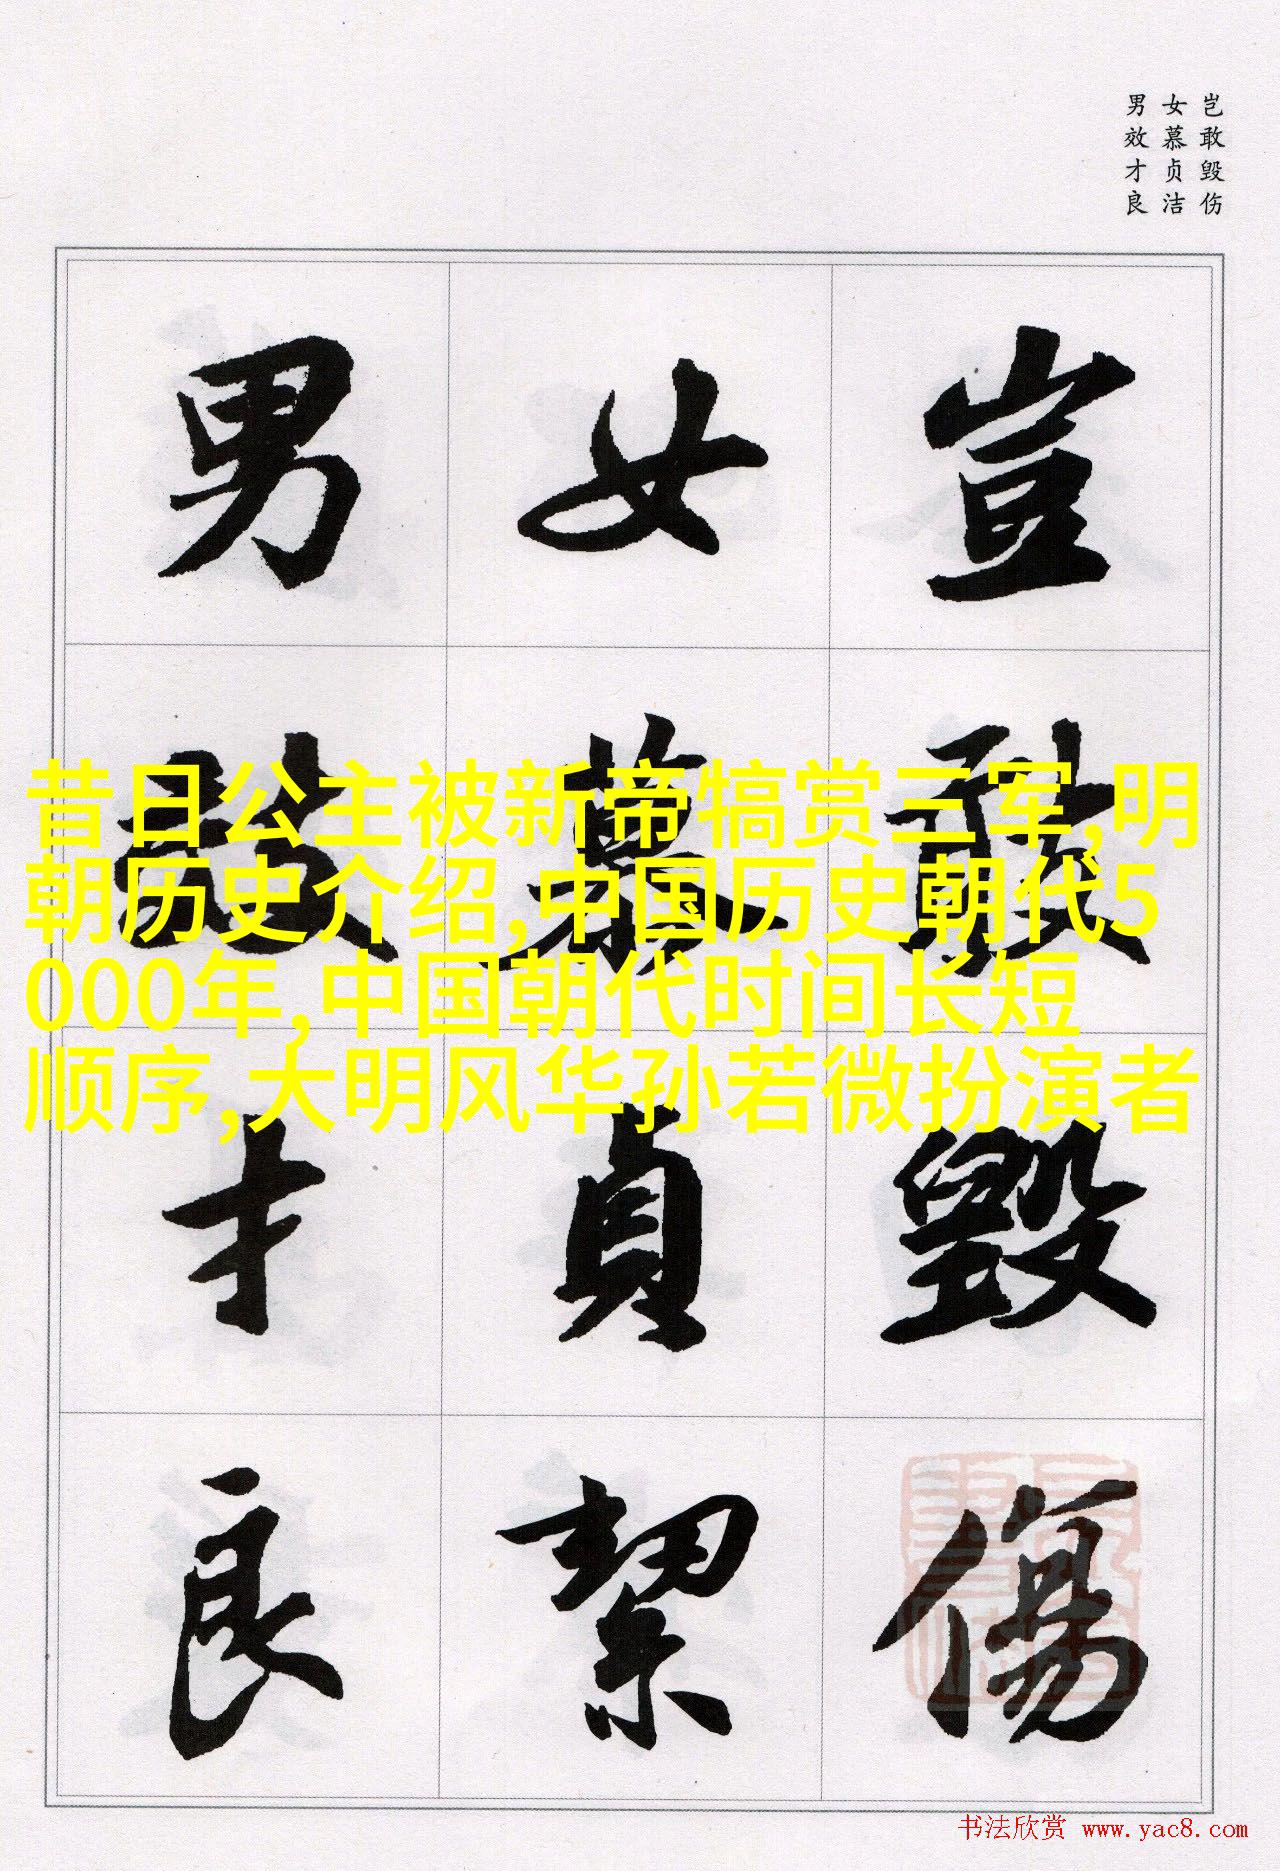 岂敢毁伤
女慕贞洁
男效才良
豈敢毀傷
女慕貞絜
男效才良
昔日公主被新帝犒赏三军,明
朝历史介绍,中国历史朝代5
000年,中国朝代时间长短
顺序,大明风华孙若微扮演者
书法欣赏 www.yac8.com